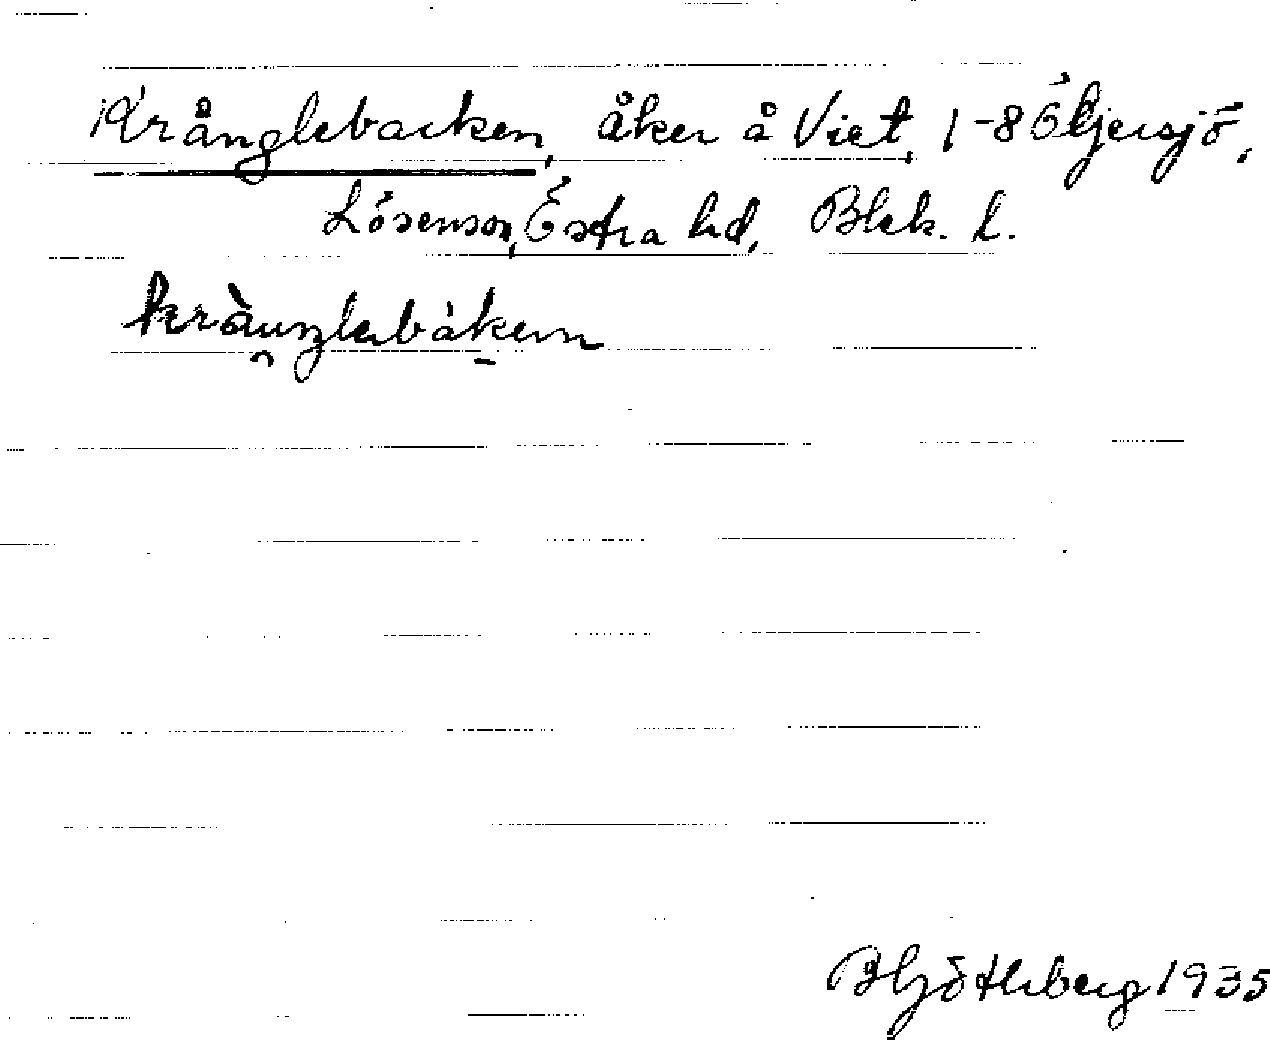 Krånglebacken, åker å Viet, 1-8 Öljersjö,
Lösensor, Östra hd, Blek. L.
kràunglebàken
B Göthberg 1935